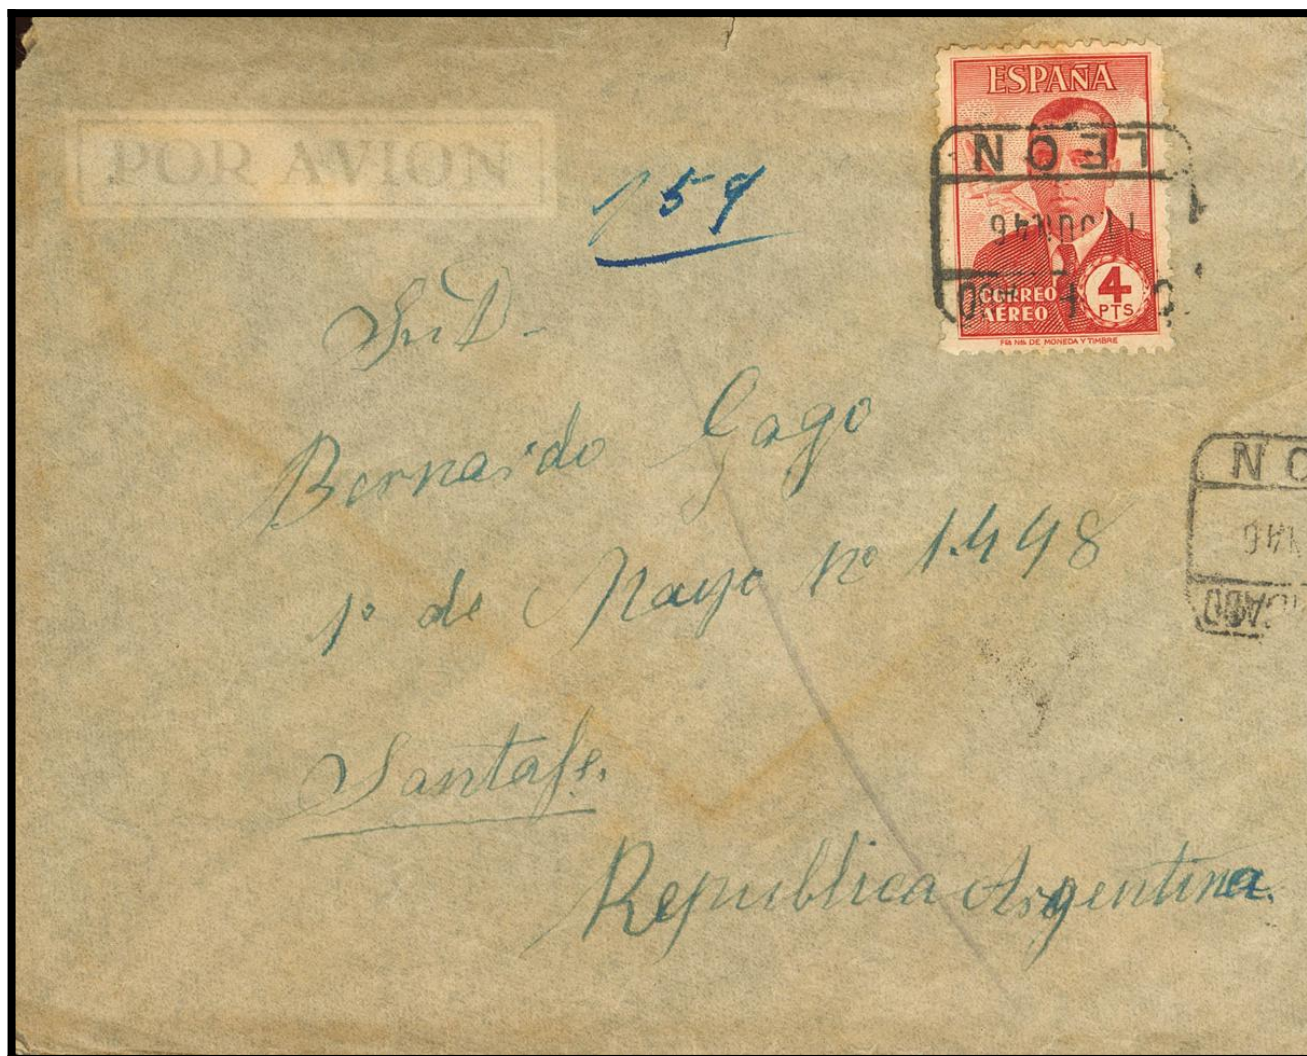 POR AVION
159
ESPAÑA
LEON
11 JUN 46
CORREO
AÉREO
4
PTS
FÁB. NAL. DE MONEDA Y TIMBRE
Sr. D.
Bernardo Gago
1º de Mayo nº 1.448
Santafe.
Republica Argentina.